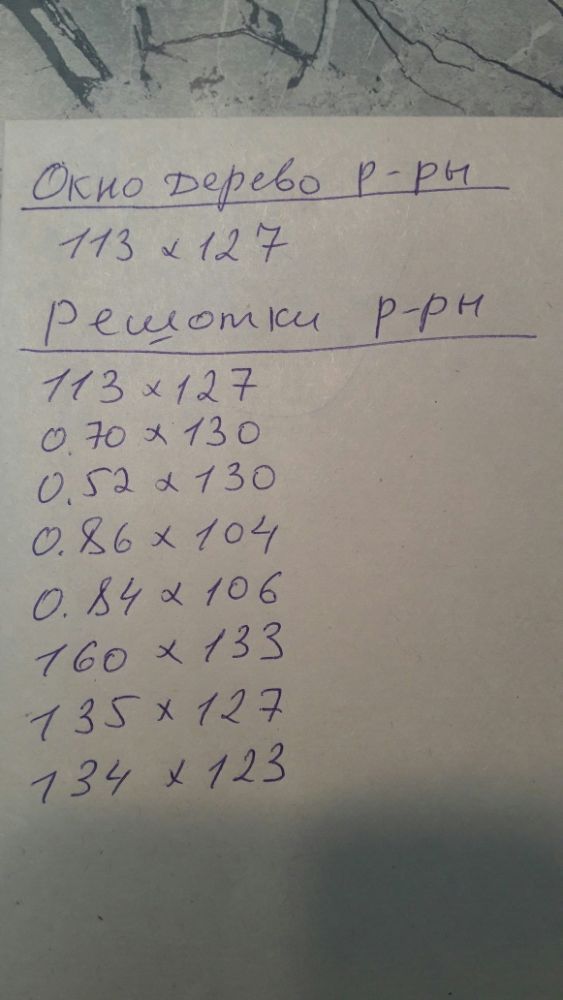 Окно дерево р-ры
113 x 127
Решотки р-ры
113 x 127
0.70 x 130
0.52 x 130
0.86 x 104
0.84 x 106
160 x 133
135 x 127
134 x 123